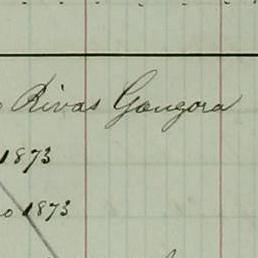 o Rivas Gongora
1873
o 1873